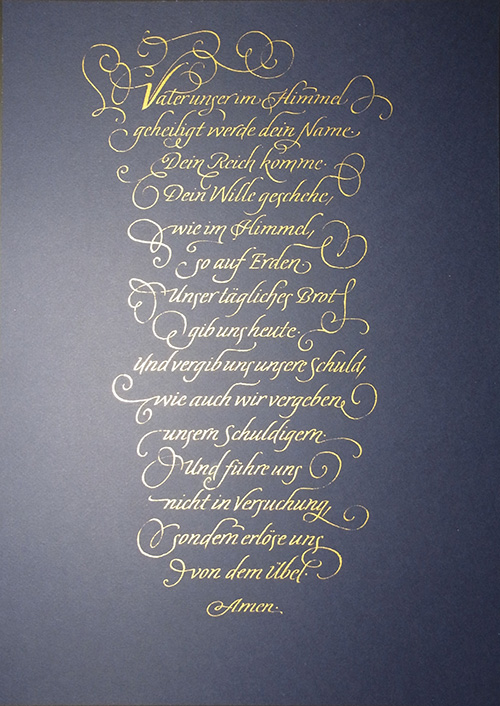 Vater unser im Himmel
geheiligt werde dein Name.
Dein Reich komme.
Dein Wille geschehe,
wie im Himmel,
so auf Erden.
Unser tägliches Brot
gib uns heute.
Und vergib uns unsere Schuld,
wie auch wir vergeben
unsern Schuldigern.
Und führe uns
nicht in Versuchung,
sondern erlöse uns
von dem Übel.
Amen.